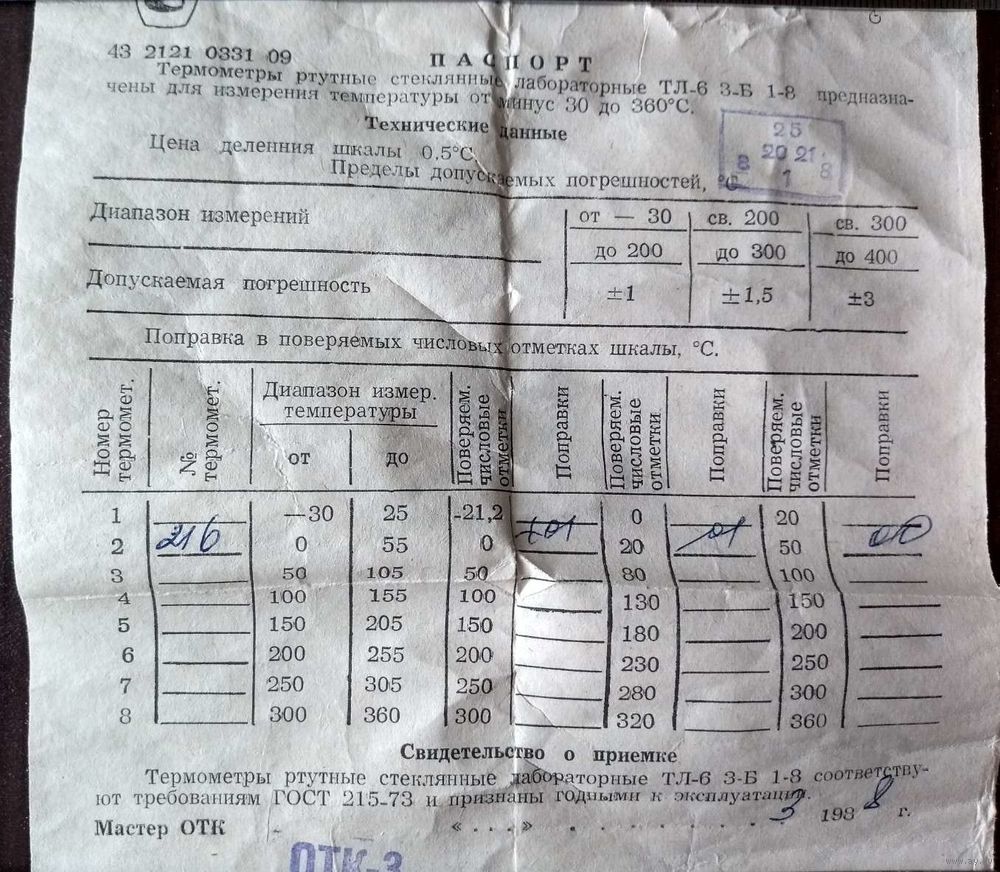 43 2121 0331 09
ПАСПОРТ
Термометры ртутные стеклянные лабораторные ТЛ-6 3-Б 1-8 предназна-
чены для измерения температуры от минус 30 до 360°С.
Технические данные
25
20 21
8 1 8
Цена деленния шкалы 0,5°С
Пределы допускаемых погрешностей, °С
Диапазон измерений от — 30 св. 200 св. 300
до 200 до 300 до 400
Допускаемая погрешность ±1 ±1,5 ±3
Поправка в поверяемых числовых отметках шкалы, °С.
Номер термомет. № термомет. Диапазон измер. температуры от до Поверяем. числовые отметки Поправки Поверяем. числовые отметки Поправки Поверяем. числовые отметки Поправки
1 —30 25 -21,2 0 20
2 216 0 55 0 +01 20 01 50 00
3 50 105 50 80 100
4 100 155 100 130 150
5 150 205 150 180 200
6 200 255 200 230 250
7 250 305 250 280 300
8 300 360 300 320 360
Свидетельство о приемке
Термометры ртутные стеклянные лабораторные ТЛ-6 3-Б 1-8 соответству-
ют требованиям ГОСТ 215-73 и признаны годными к эксплуатации.
Мастер ОТК « . . . » . . . . . . . . 3 198 8 г.
ОТК-3